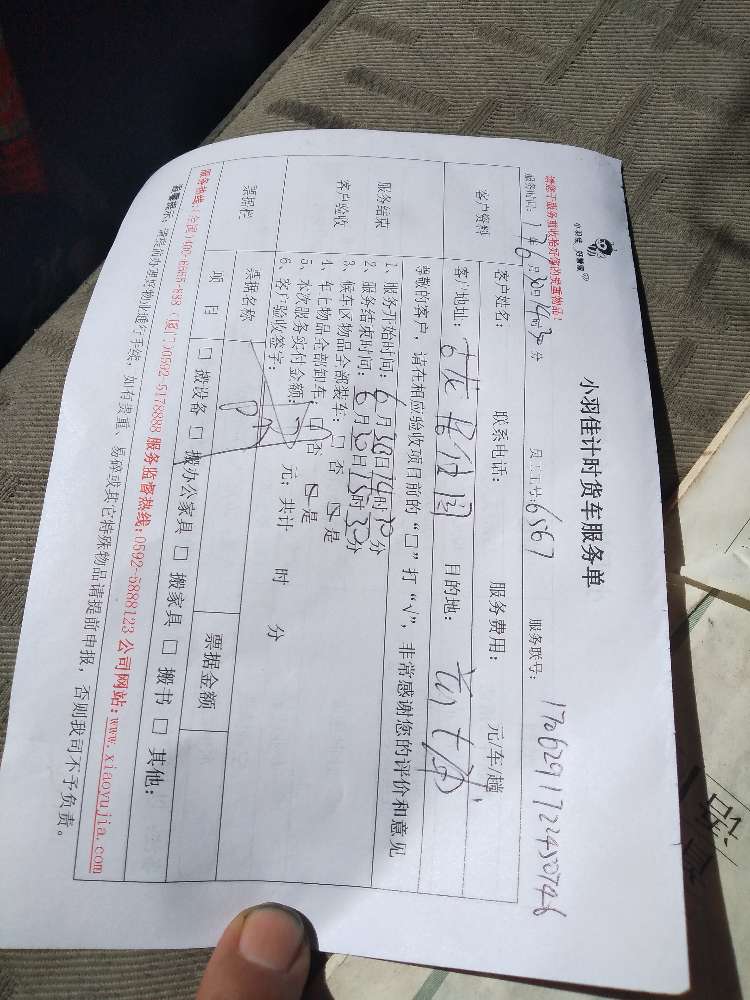 小羽佳 好管家
小羽佳计时货车服务单
请您于服务前收拾好您的贵重物品！
服务时间：17年6月30日14时30分 员工工号：6567 服务联号：170629172245074
客户资料
客户姓名： 联系电话： 服务费用： 元/车/趟
客户地址： 目的地：
尊敬的客户，请在相应验收项目前的“□”打“√”，非常感谢您的评价和意见
服务结束
客户验收
1、服务开始时间：6月30日14时30分
2、服务结束时间：6月30日15时30分
3、候车区物品全部装车：□ 否 □ 是
4、车上物品全部卸车：□ 否 □ 是
5、本次服务实付金额： 元；共计 时 分
6、客户验收签字：
票据栏
票据名称 票据金额
项 目 □ 搬设备 □ 搬办公家具 □ 搬家具 □ 搬书 □ 其他：
服务热线：(全国)400-6868-888 (厦门)0592-5178888 服务监督热线：0592-5888123 公司网站：www.xiaoyujia.com
温馨提示：请提前办理好物业通行手续，如有贵重、易碎或其它特殊物品请提前申报，否则我司不予负责。